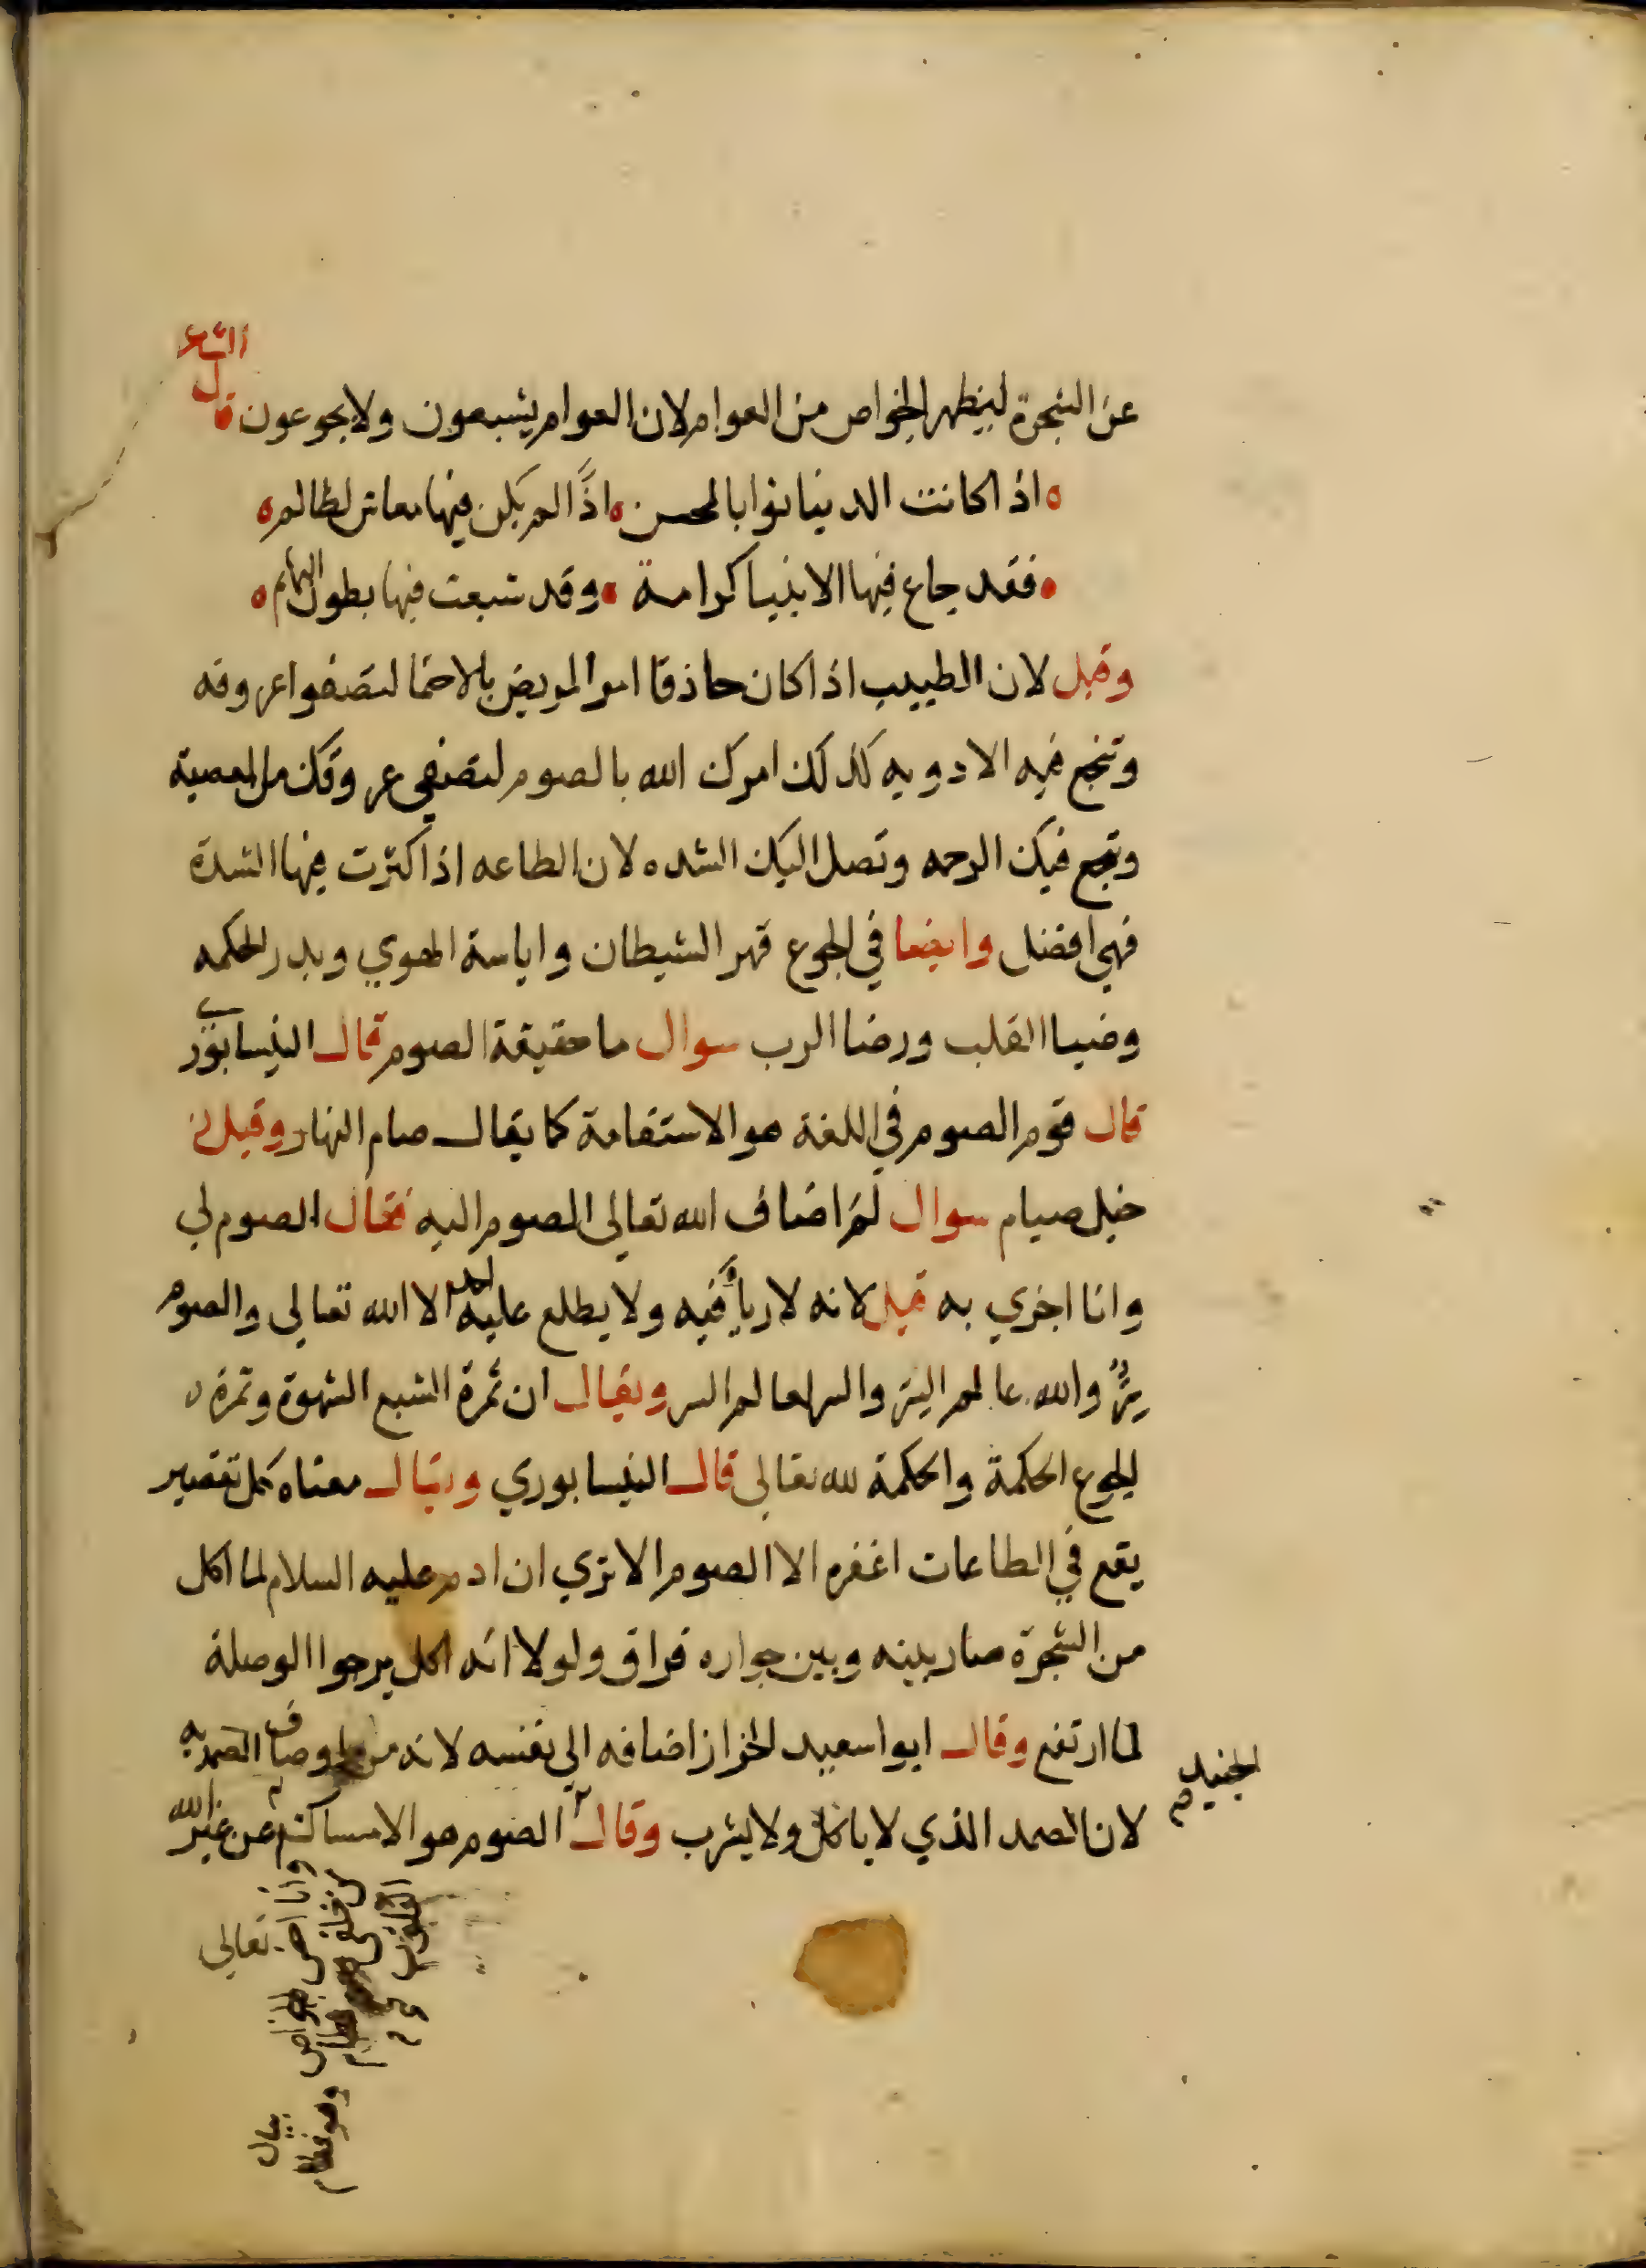 عن الشجرة ليظهر الخواص من العوام لان العوام يشبعون ولا يجوعون قال الشاعر
اذا كانت الدنيا ثوابا لمحسن اذا لم يكن فيها معاش لظالم
فقد جاع فيها الانبيا كرامة وقد شبعت فيها بطون البهائم
وقيل لان الطبيب اذا كان حاذقا امر المريض بالاحتما لتصفوا عروقه
وتنجع فيه الادويه كذلك امرك الله بالصوم لتصفى عروقك من المعصية
وتنجع فيك الرحمه وتصل اليك الشده لان الطاعه اذا كثرت فيها الشدة
فهي افضل وايضا في الجوع قهر الشيطان واياسة الهوي وبدر الحكمه
وضيا القلب ورضا الرب سوال ما حقيقة الصوم قال النيسابوري
قال قوم الصوم في اللغة هو الاستقامة كما يقال صام النهار وقيل
خيل صيام سوال لم اضاف الله تعالى الصوم اليه فقال الصوم لي
وانا اجزي به قيل لانه لا رياء فيه ولا يطلع عليه احد الا الله تعالى والصوم
سر والله عالم السر والسر لعالم السر ويقال ان ثمرة الشبع الشهوة وثمرة
الجوع الحكمة والحكمة لله تعالى قال النيسابوري ويقال معناه كل تقصير
يقع في الطاعات اغفره الا الصوم الا تري ان ادم عليه السلام لما اكل
من الشجرة صار بينه وبين جواره فراق ولولا انه اكل يرجوا الوصلة
لما ارتفع وقال ابوا سعيد الخراز اضافه الي نفسه لانه من اوصاف الصمديه
لان الصمد الذي لا ياكل ولا يشرب وقال الصوم هو الامساك عن غير الله
الجنيد صح
تعالى
واما الخواص
وهو فطام